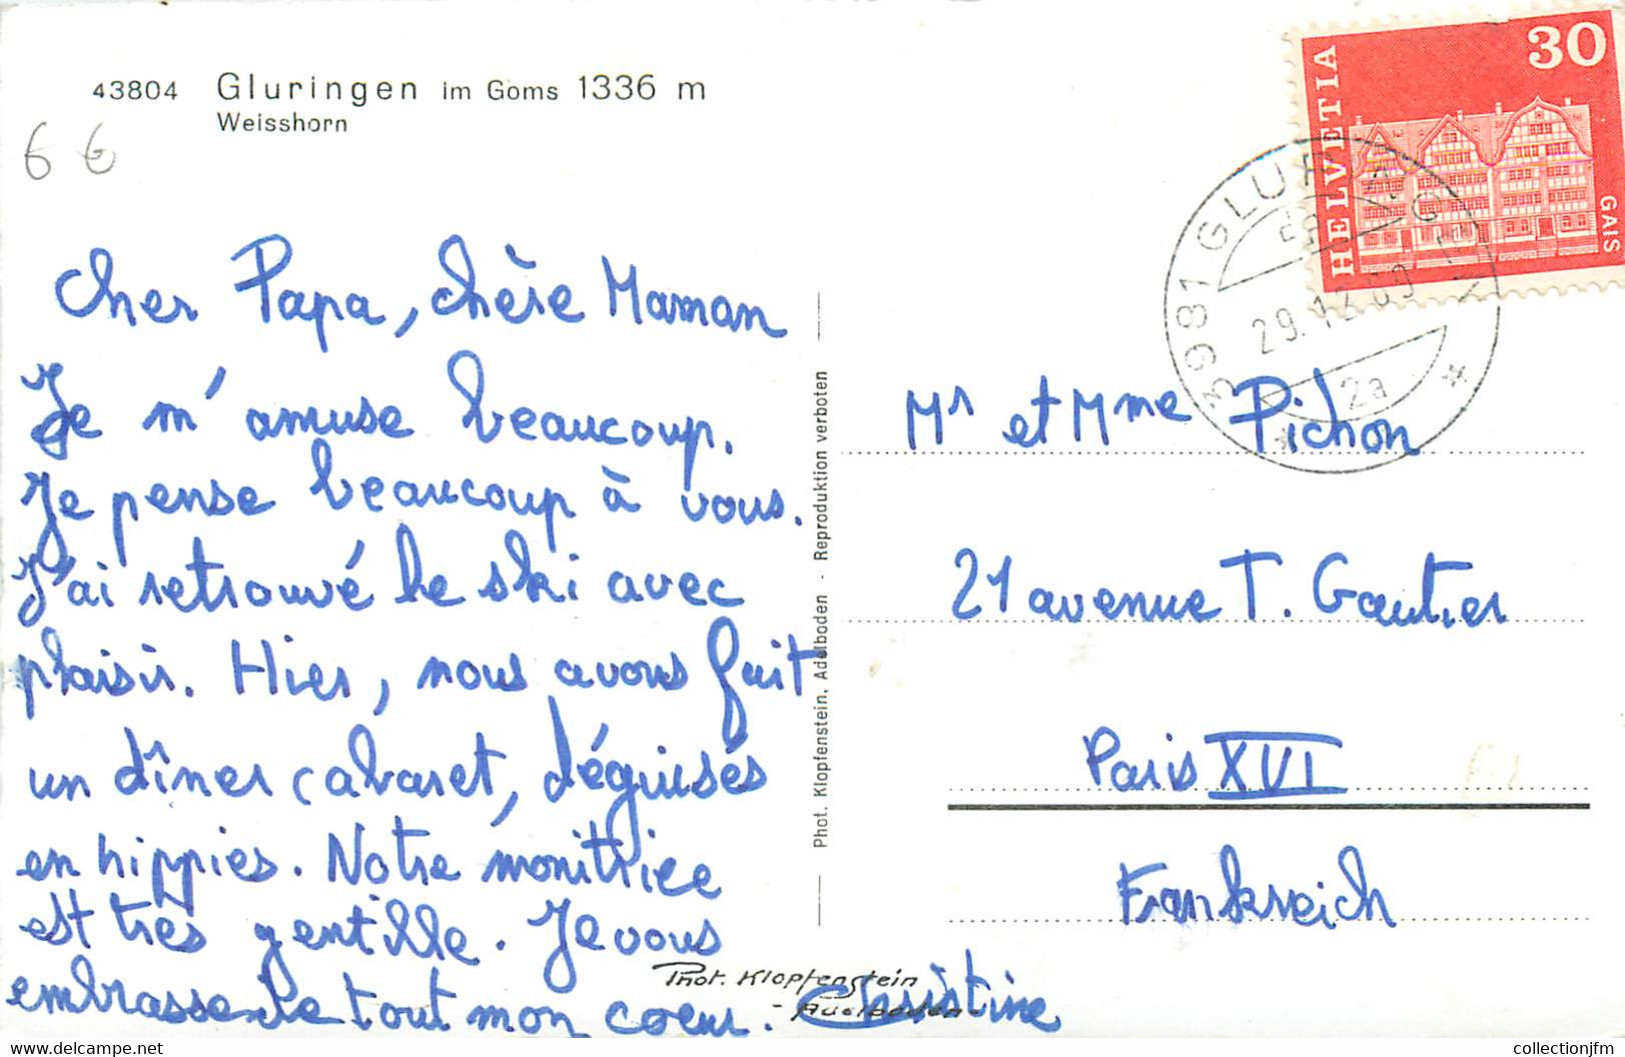 43804 Gluringen im Goms 1336 m
Weisshorn
6 6
Cher Papa, chère Maman
Je m'amuse beaucoup.
Je pense beaucoup à vous.
J'ai retrouvé le ski avec
plaisir. Hier, nous avons fait
un dîner cabaret, déguisés
en hippies. Notre monitrice
est très gentille. Je vous
embrasse de tout mon coeur. Christine
Phot. Klopfenstein
- Adelboden -
Phot. Klopfenstein, Adelboden - Reproduktion verboten
HELVETIA
30
GAIS
3981 GLURINGEN
29.12.69
2a
Mr et Mme Pichon
21 avenue T. Gautier
Paris XVI
Frankreich
collectionjfm